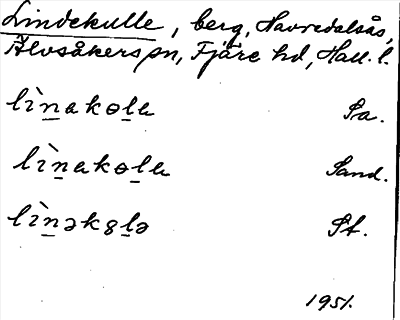 Lindekulle, berg, Havredalsås,
Älvsåkers sn, Fjäre hd, Hall. l.
lìn̲akɵl̲a Pa.
lìn̲akɵl̲a Sand.
lìn̲əkȣl̲ə St.
1951.